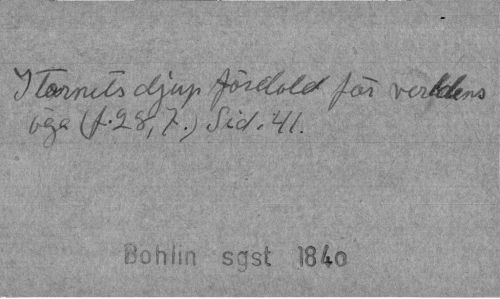 I tornets djup fördold för verldens
öga (f. 28, 7.) Sid. 41.
Bohlin sgst 1840